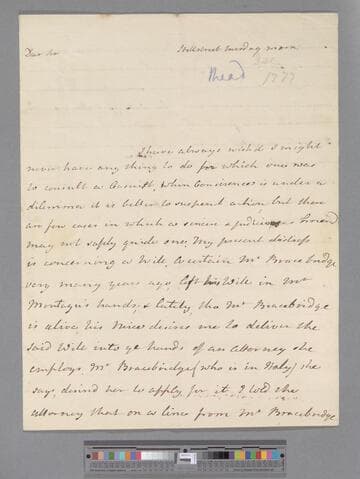 Dear Sir Hill street Tuesday morn
Dec
1777
I have always wish'd I might
never have any thing to do for which one was
to consult a Casuist. When Conscience is under a
dilemma it is better to suspend action, but there
are few cases in which a sincere & judicious friend
may not safely guide one. My present distress
is concerning a Will. A certain Mr Bracebridge
very many years ago left his Will in Mr
Montagu's hands, & lately, tho Mr Bracebridge
is alive, his Niece desires me to deliver the
said Will into ye hands of an Attorney she
employs. Mr Bracebridge (who is in Italy) she
says, desired her to apply for it. I told the
attorney that on a line from Mr Bracebridge